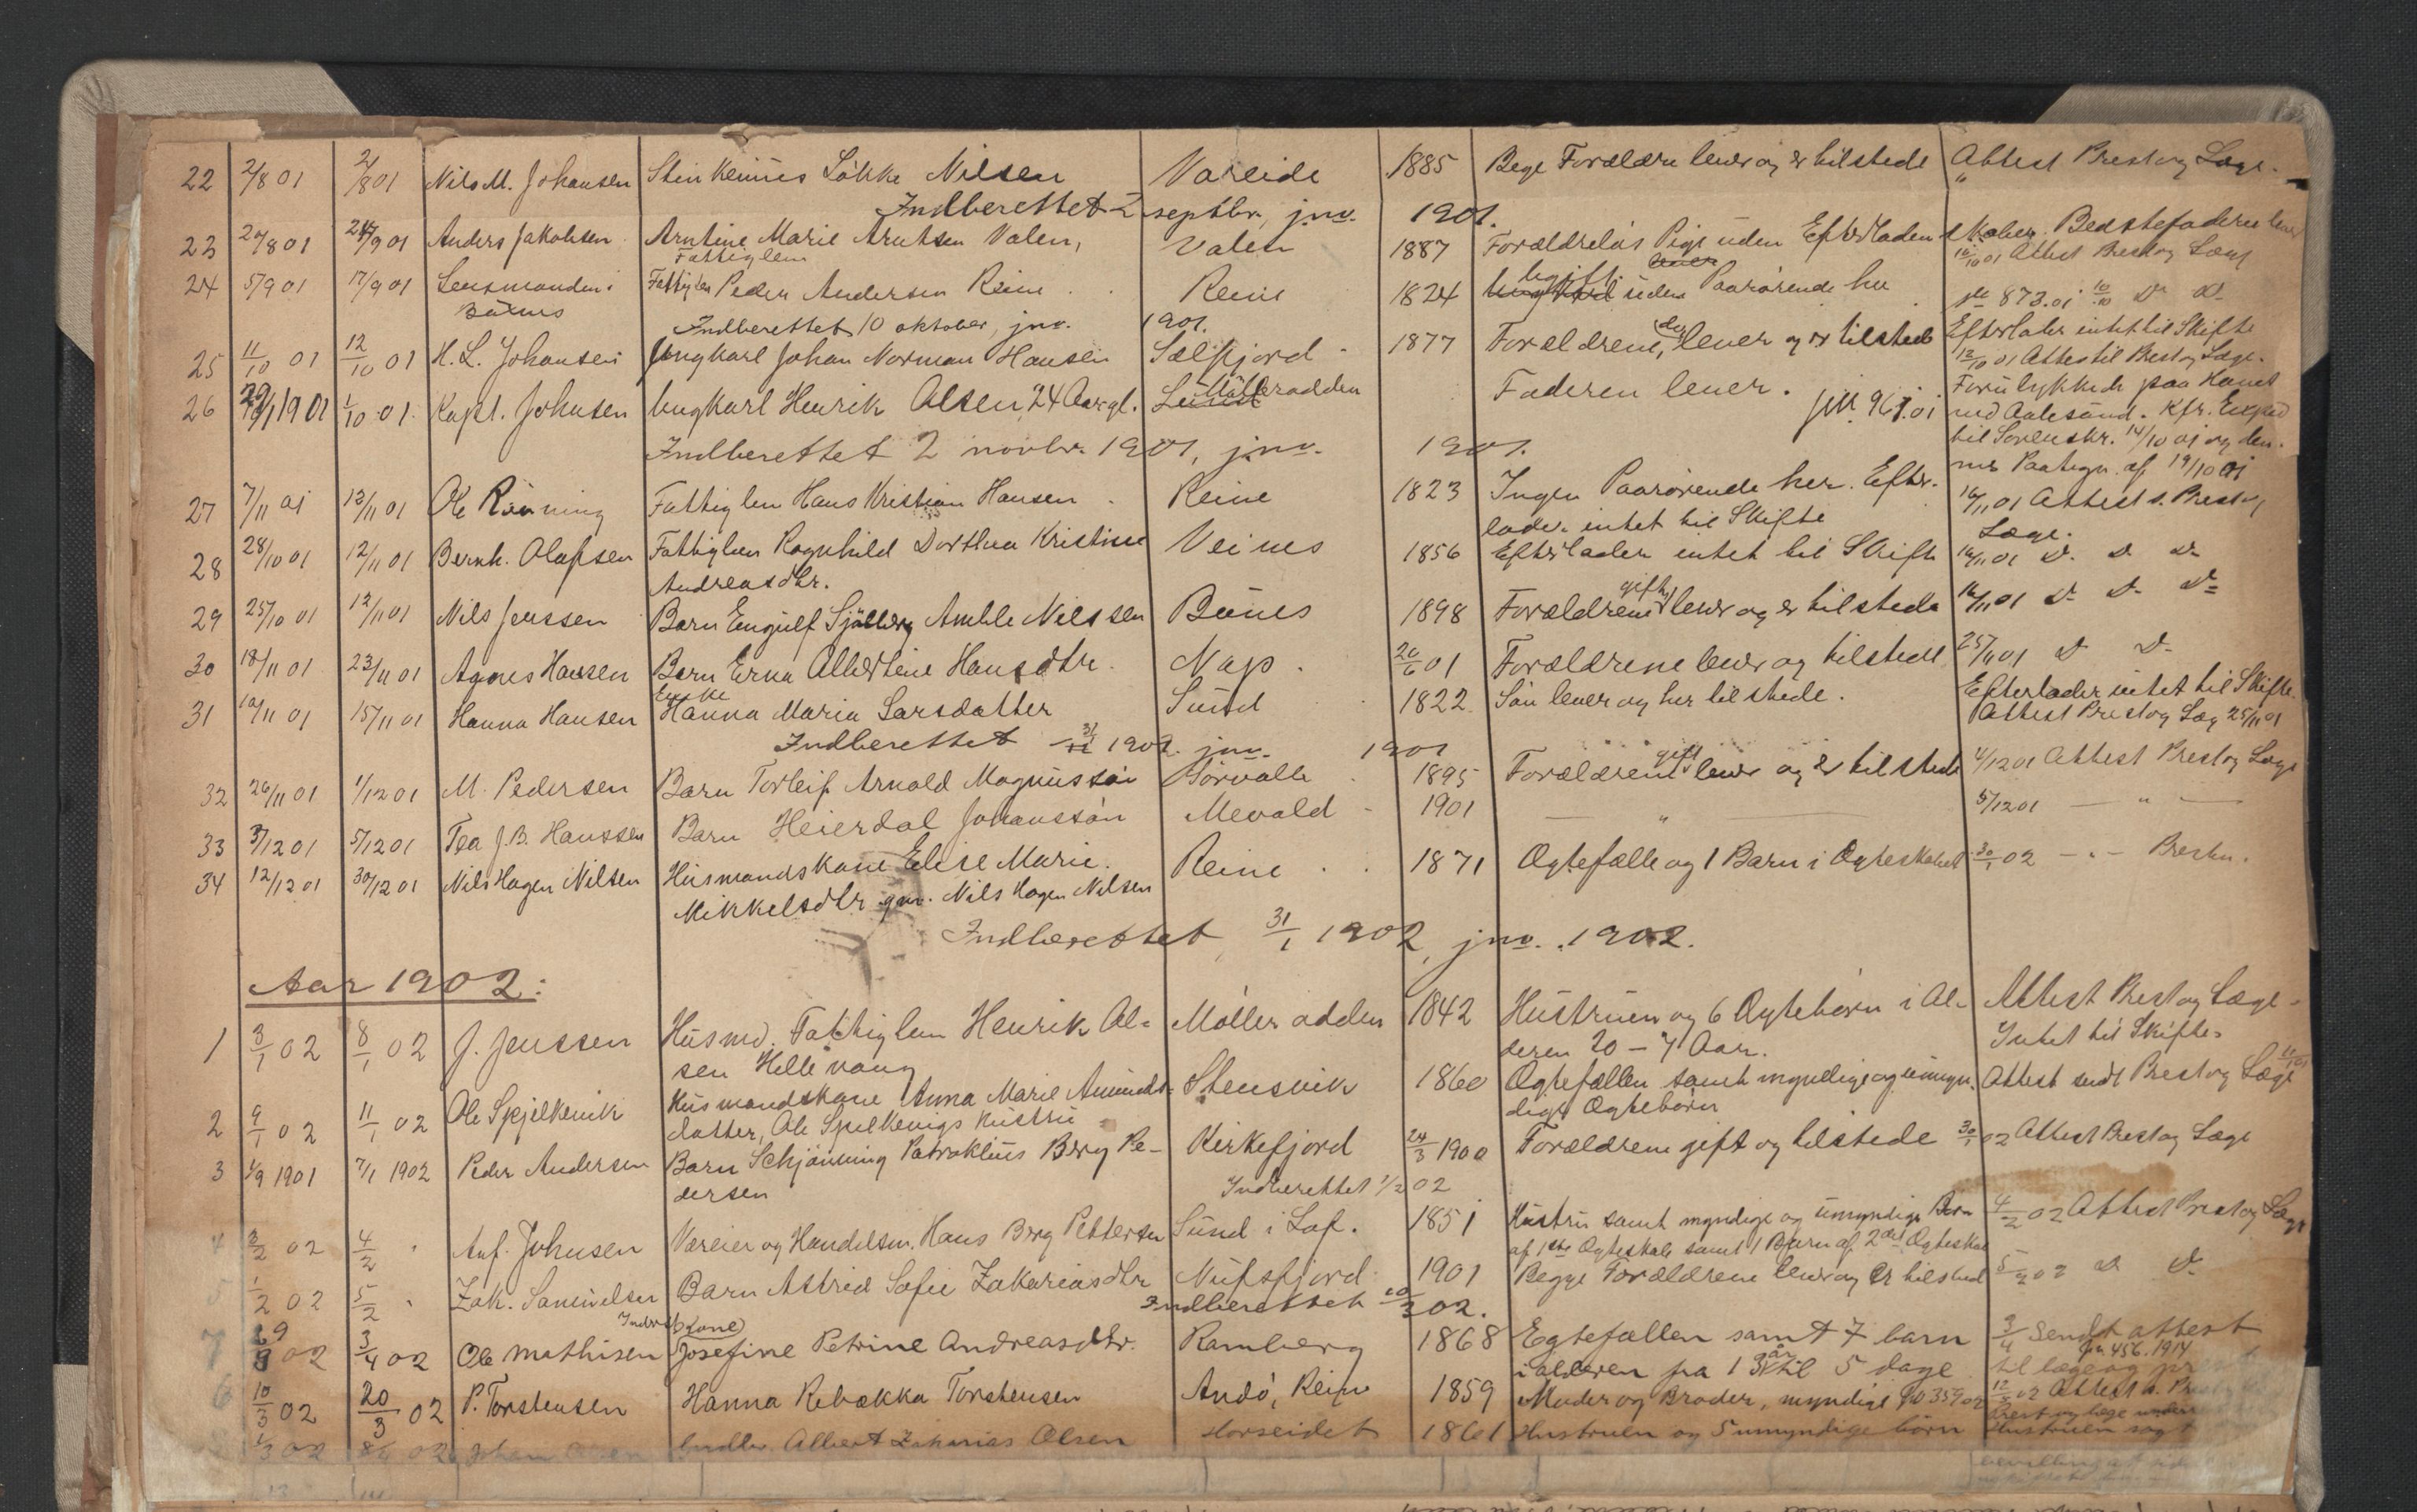 22 2/8 01 2/8 01 Nils M. Johansen Steinkeines Løkke Nilsen Vareide 1885 Bege Forældre lever og er tilstede Attest Prest og Læge.
Indberettet 2 septbr. jno. 1901.
23 20/8 01 24/9 01 Anders Jakobsen Arntine Marie Arntsen Valen, Valen 1887 Forældreløs Pige uden Efterladenskaber. Bedstefaderen lever
Fattiglem 10/10 01 Attest Prest og Læge
24 5/9 01 17/9 01 Lensmanden i Fattiglem Peder Andersen Reine Reine 1824 Ugift uden Paarørende her jno 873.01 10/10 do do
Bunes
Indberettet 10 oktober, jno. 1901.
Efterlader intet til Skifte
25 11/10 01 12/10 01 H. L. Johansen Ungkarl Johan Norman Hansen Selfjord 1877 Forældrene, lever og er tilstede 12/10 01 Attest til Prest og Læge.
26 1901 1/10 01 Kapt. Johnsen Ungkarl Henrik Olsen 24 Aar gl. Mølleradden Faderen lever. jno. 961.01 Forulykkede paa Havet
ved Aalesund. Kfr. Exped
til Sorenskr. 14/10 01 og den-
Indberettet 2 novbr. 1901, jno. 1901.
nes Paategn. af 19/10 01
27 7/11 01 13/11 01 Ole Rønning Fattiglem Hans Kristian Hansen Reine 1823 Ingen Paarørende her. Efter- 16/11 01 Attest s. Prest og
lader intet til Skifte Læge.
28 28/10 01 12/11 01 Bernh. Olafsen Fattiglem Ragnhild Dorthea Kristine Veines 1856 Efterlader intet til Skifte 16/11 01 do do do
Andreasdtr.
29 25/10 01 12/11 01 Nils Jenssen Barn Engulf Sjøberg Amble Nilssen Bunes 1898 Forældrene gift, lever og er tilstede 16/11 01 do do do
30 18/11 01 23/11 01 Agnes Hansen Barn Erna Albertine Hansdtr. Nap. 20/6 01 Forældrene lever og tilstede 25/11 01 do do
Enke Efterlader intet til Skifte.
31 10/11 01 15/11 01 Hanna Hansen Hanna Maria Larsdatter Sund 1822 Søn lever og her tilstede. Attest Prest og Læg 25/11 01
Indberettet 1901. jno. 1901
32 26/11 01 1/12 01 M. Pedersen Barn Torleif Arnold Magnussøn Sørvalle 1895 Forældrene gift, lever og er tilstede 4/12 01 Attest Prest og Læge
33 3/12 01 5/12 01 Tea J. B. Hanssen Barn Heierdal Johanssøn Mevold 1901 — " — 5/12 01 — " —
34 12/12 01 30/12 01 Nils Hagen Nilsen Husmandskone Elise Marie Reine 1871 Ægtefælle og 1 Barn i Ægteskabet 30/1 02 — " — Presten.
Mikkelsdtr gm. Nils Hagen Nilsen
Indberettet 31/1 1902, jno. 1902.
Aar 1902:
1 3/1 02 8/1 02 J. Jenssen Husmd. Fattiglem Henrik Ol= Mølleradden 1842 Hustruen og 6 Ægtebørn i Al- Attest Prest og Læge.
sen Hellevang deren 20 – 7 Aar. Intet til Skifte.
2 9/1 02 11/1 02 Ole Spjelkevik Husmandskone Anna Marie Amunds- Stensvik 1860 Ægtefællen samt myndige og umyn- Attest sendt Prest og Læge
datter, Ole Spelkevigs Hustru dige Ægtebørn
3 4/9 1901 7/1 1902 Peder Andersen Barn Schjønning Patroklius Berg Pe- Kirkefjord 24/3 1900 Forældrene gift og tilstede 30/1 02 Attest Prest og Læge
dersen Indberettet 1/2 02
4 3/2 02 4/2 " Anf. Johnsen Væreier og Handelsm. Hans Berg Pettersen Sund i Lof. 1851 Hustru samt myndige og umyndige Børn 4/2 02 Attest Prest og Læge
af 1ste Ægteskab samt 1 Barn af 2det Ægteskab
5 1/2 02 5/2 " Zak. Samuelsen Barn Astrid Sofie Zakariasdtr Nufsfjord 1901 Begge Forældrene lever og er tilsted 5/2 02 do do
Indberettet 10/3 02.
(Kone)
7 29/3 02 3/4 02 Ole Mathisen Josefine Petrine Andreasdtr. Ramberg 1868 Egtefællen samt 7 barn 3/4 sendt attest
i alderen fra 13 år til 5 dage til læge og pr
jn. 456.1914
6 10/3 02 20/3 02 P. Torstensen Hanna Rebekka Torstensen Andø, Reine 1859 Moder og Broder, myndige 12/3 02 Attest s. Pr
1/3 02 02 Johan Albert Zakarias Olsen Horseidet 1861 Hustruen og 5 umyndige børn Hustruen